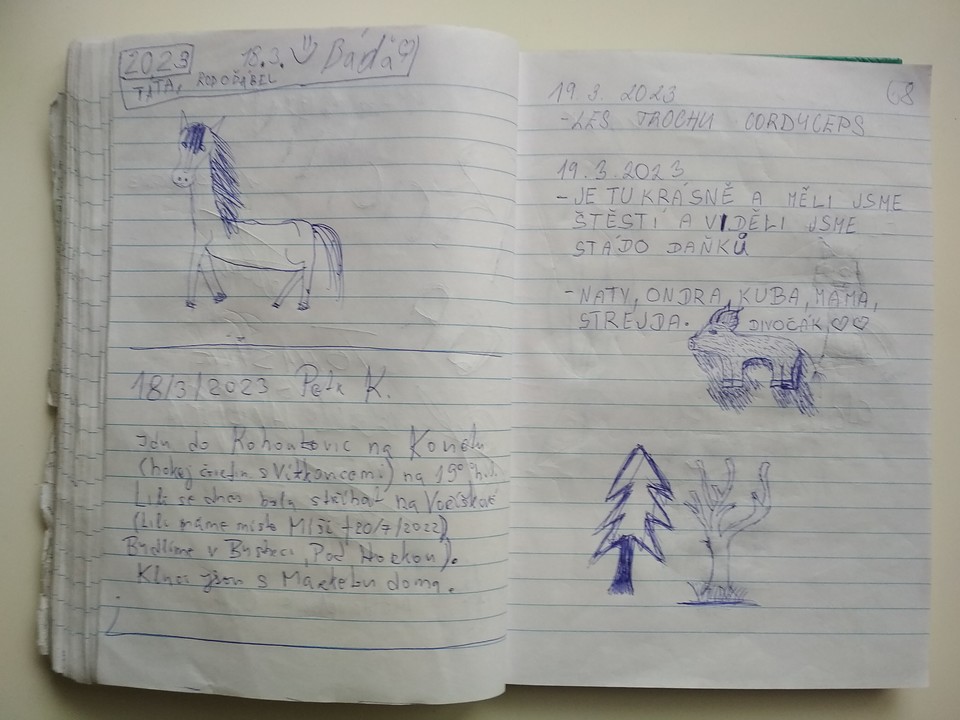 2023 18.3. Báďa
TÁTA,
18/3/2023 Petr K.
Jdu do Kohoutovic na
(hokej s ) na 19
Lili se dnes byla stříhat na
(Lili máme místo Míši †20/7/2022)
Bydlíme v (Pod Horkou).
Kluci jsou s Markétou doma.
68
19.3. 2023
-LES TROCHU CORDYCEPS
19.3.2023
-JE TU KRÁSNĚ A MĚLI JSME
ŠTĚSTÍ A VIDĚLI JSME
STÁDO DAŇKŮ
-NATY, ONDRA, KUBA, MÁMA,
STREJDA. DIVOČÁK ♡♡